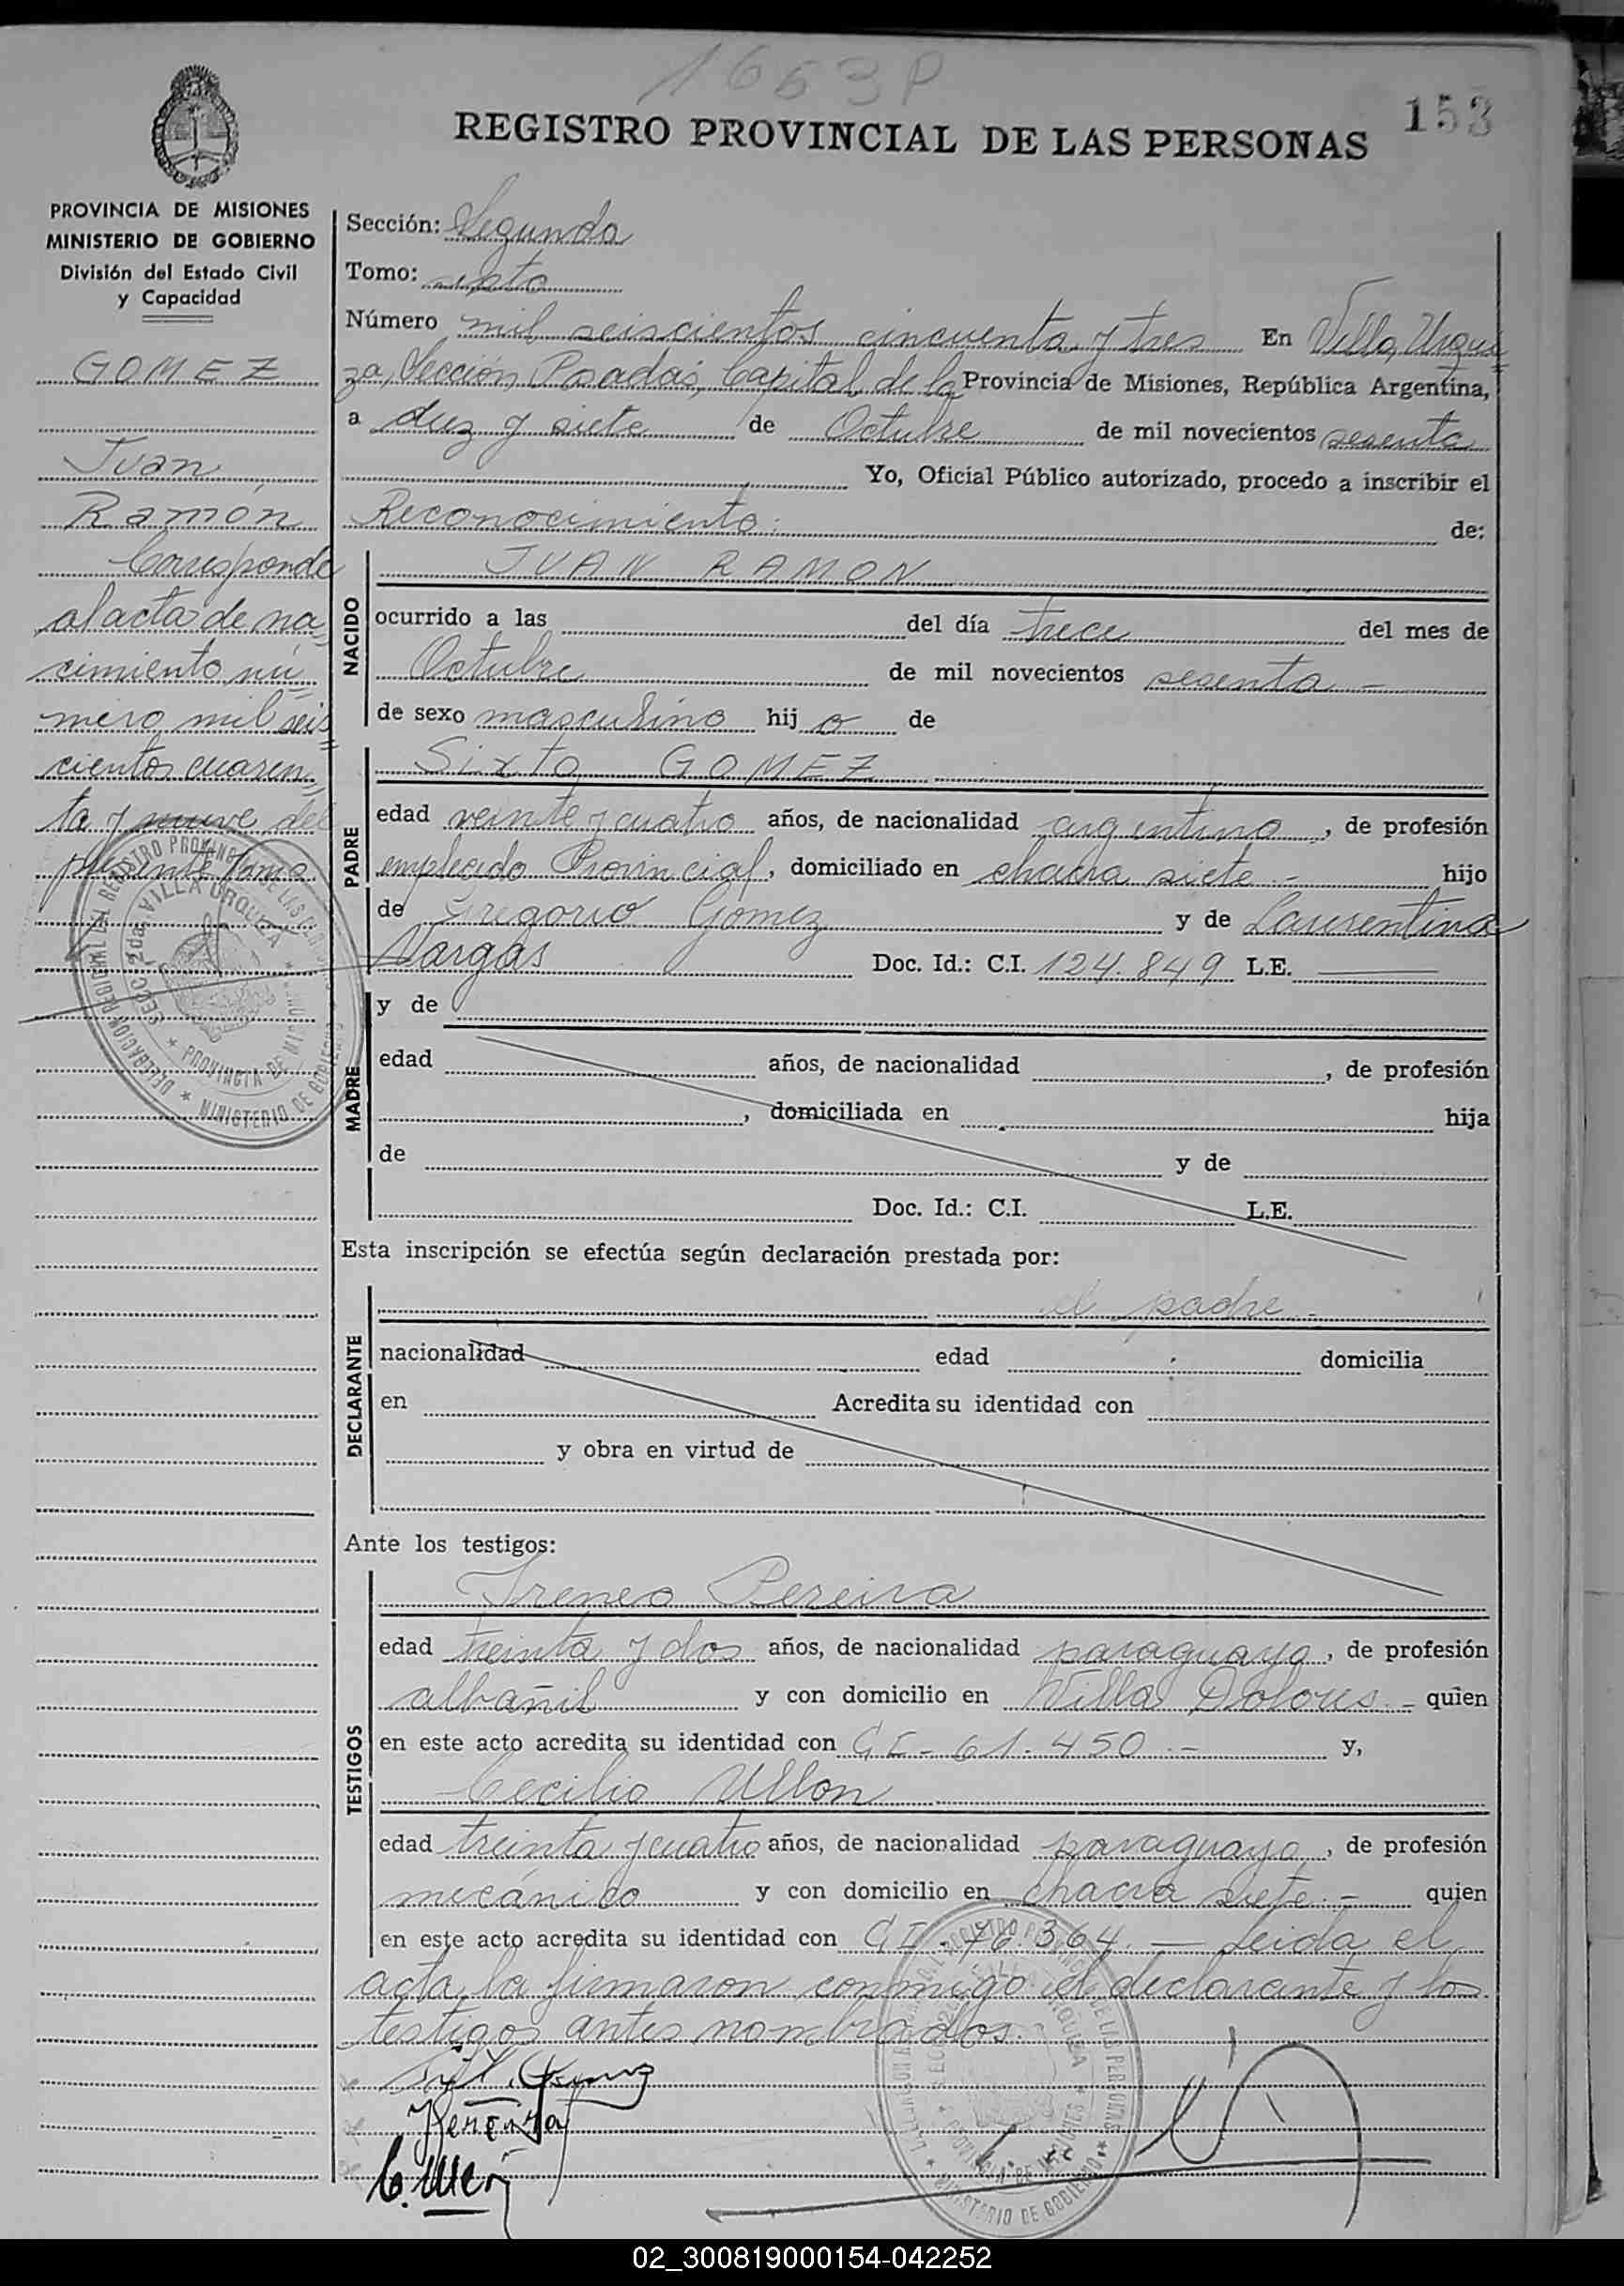 1653 P
153
REGISTRO PROVINCIAL DE LAS PERSONAS
PROVINCIA DE MISIONES
MINISTERIO DE GOBIERNO
División del Estado Civil
y Capacidad
GOMEZ
Juan
Ramón
Corresponde
al acta de na
cimiento nú
mero mil seis
cientos cuaren
ta y nueve del
presente tomo
Sección: Segunda
Tomo: sexto
Número mil seiscientos cincuenta y tres En Villa Urqui
za, Sección Posadas, Capital de la Provincia de Misiones, República Argentina,
a diez y siete de Octubre de mil novecientos sesenta
Yo, Oficial Público autorizado, procedo a inscribir el
Reconocimiento de:
NACIDO
JUAN RAMON
ocurrido a las del día trece del mes de
Octubre de mil novecientos sesenta -
de sexo masculino hijo de
PADRE
Sixto GOMEZ
edad veinte y cuatro años, de nacionalidad argentino, de profesión
empleado Provincial, domiciliado en chacra siete.- hijo
de Gregorio Gomez y de Laurentina
Vargas Doc. Id.: C.I. 124.849 L.E.
MADRE
y de
edad años, de nacionalidad , de profesión
, domiciliada en hija
de y de
Doc. Id.: C.I. L.E.
Esta inscripción se efectúa según declaración prestada por:
DECLARANTE
el padre.-
nacionalidad edad domicilia
en Acredita su identidad con
y obra en virtud de
Ante los testigos:
TESTIGOS
Ireneo Pereira
edad treinta y dos años, de nacionalidad paraguayo, de profesión
albañil y con domicilio en Villa Dolores.- quien
en este acto acredita su identidad con C I - 61.450.- y,
Cecilio Ullon
edad treinta y cuatro años, de nacionalidad paraguayo, de profesión
mecánico y con domicilio en chacra siete.- quien
en este acto acredita su identidad con C I - 76.364.- Leida el
acta la firmaron conmigo el declarante y los
testigos antes nombrados.
02_300819000154-042252